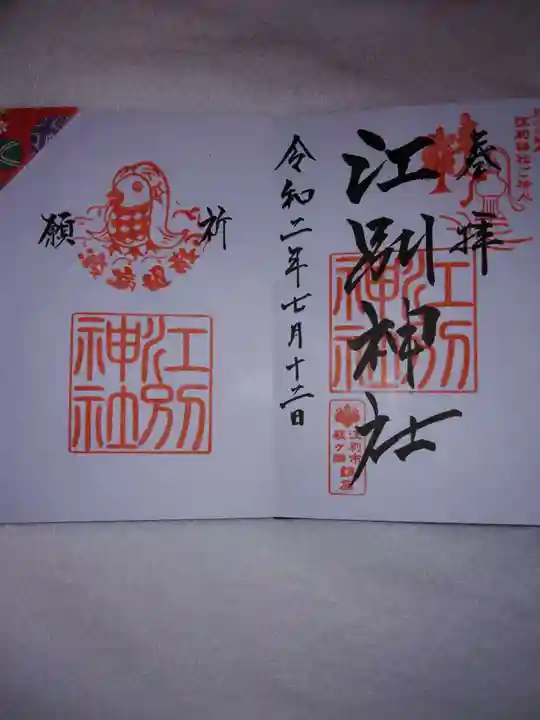 奉拝
江別神社
江別神社
江別市
萩ヶ岡
鎮座
令和二年七月十二日
祈
願
江別神社